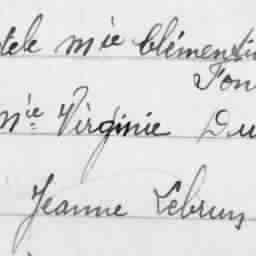 tele Mie Clémenti
Fon
Mie Virginie Du
Jeanne Lebrun